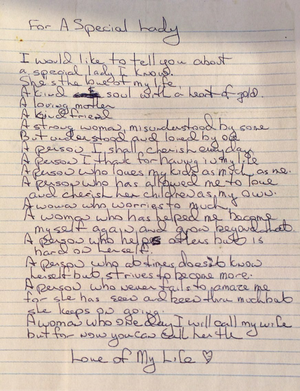 For A Special Lady
I would like to tell you about
a special lady I know.
She's the best of my life.
A kind soul with a heart of gold
A loving mother
A kind friend
A strong woman, misunderstood by some
But understood and loved by me
A person I shall cherish everyday
A person I thank for having in my life
A person who loves my kids as much as me.
A person who has allowed me to love
and cherish her children as my own.
A woman who worries to much
A woman who has helped me become
myself again and grow beyond that
A person who helps others but is
hard on herself.
A person who at times doesn't know
herself but, strives to become more.
A person who never fails to amaze me
for she has seen and been thru much but
she keeps on going.
A woman who one day I will call my wife
but for now you can call her the
Love of My Life ♡